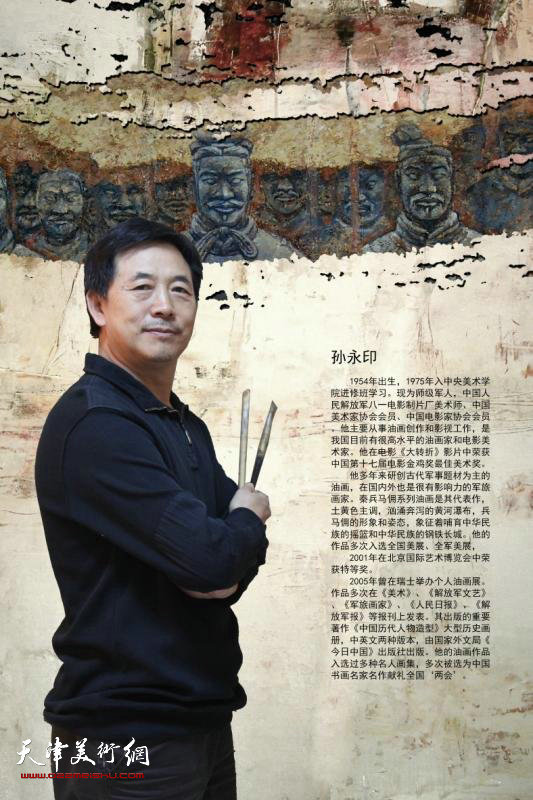 孙永印
1954年出生，1975年入中央美术学
院进修班学习。现为师级军人，中国人
民解放军八一电影制片厂美术师、中国
美术家协会会员、中国电影家协会会员
。他主要从事油画创作和影视工作，是
我国目前有很高水平的油画家和电影美
术家。他在电影《大转折》影片中荣获
中国第十七届电影金鸡奖最佳美术奖。
他多年来研创古代军事题材为主的
油画，在国内外也是很有影响力的军旅
画家。秦兵马俑系列油画是其代表作，
土黄色主调，汹涌奔泻的黄河瀑布，兵
马俑的形象和姿态，象征着哺育中华民
族的摇篮和中华民族的钢铁长城。他的
作品多次入选全国美展、全军美展，
2001年在北京国际艺术博览会中荣
获特等奖。
2005年曾在瑞士举办个人油画展。
作品多次在《美术》、《解放军文艺》
、《军旅画家》、《人民日报》、《解
放军报》等报刊上发表。其出版的重要
著作《中国历代人物造型》大型历史画
册，中英文两种版本，由国家外文局《
今日中国》出版社出版。他的油画作品
入选过多种名人画集，多次被选为中国
书画名家名作献礼全国‘两会’。
天津美術網